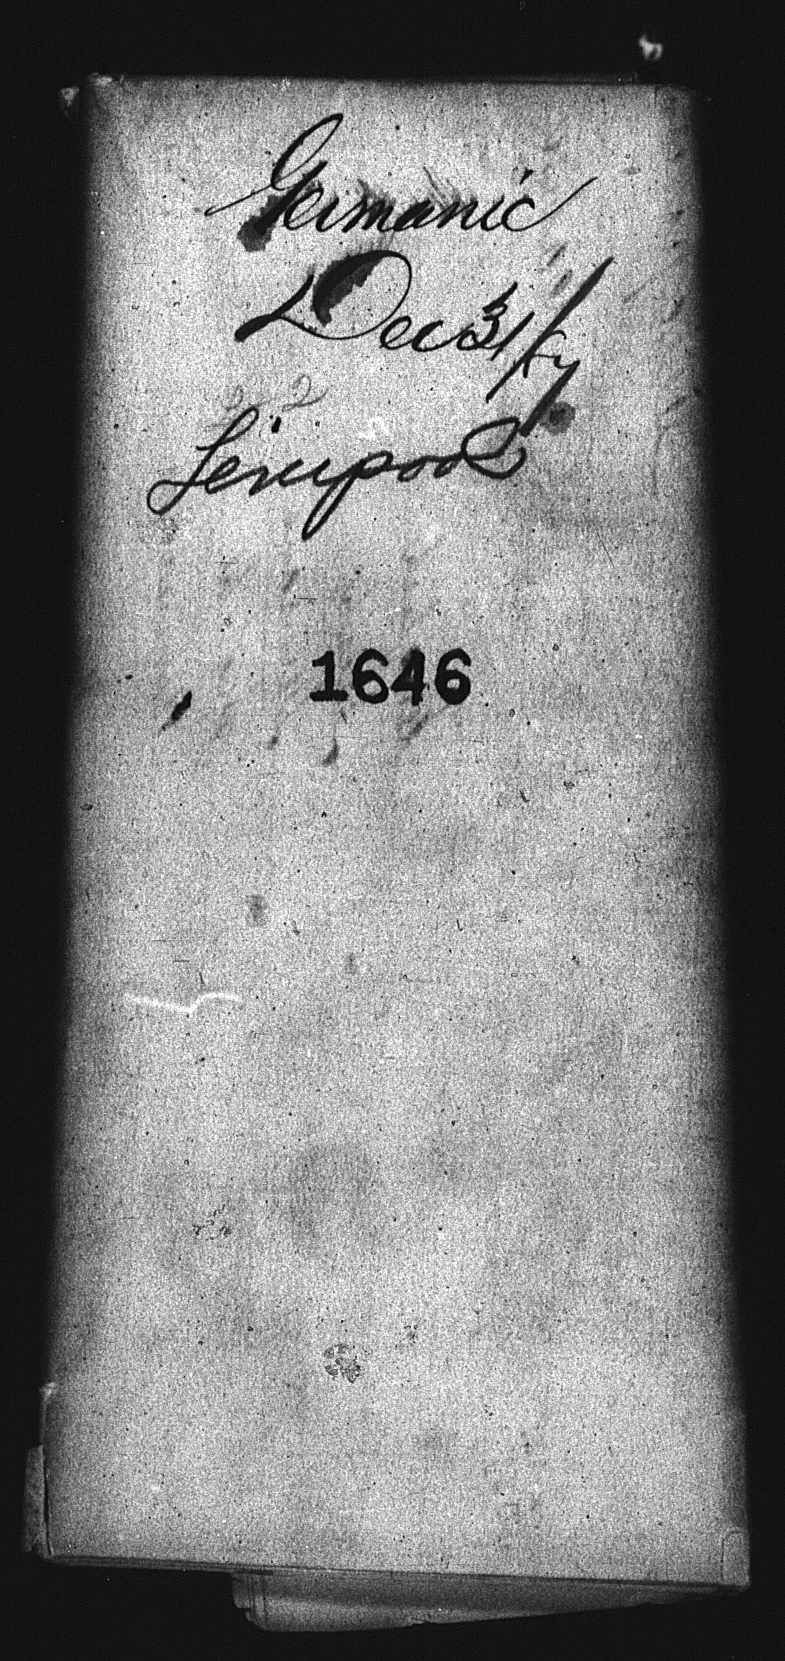 Germanic
Dec 31/87
Liverpool
1646